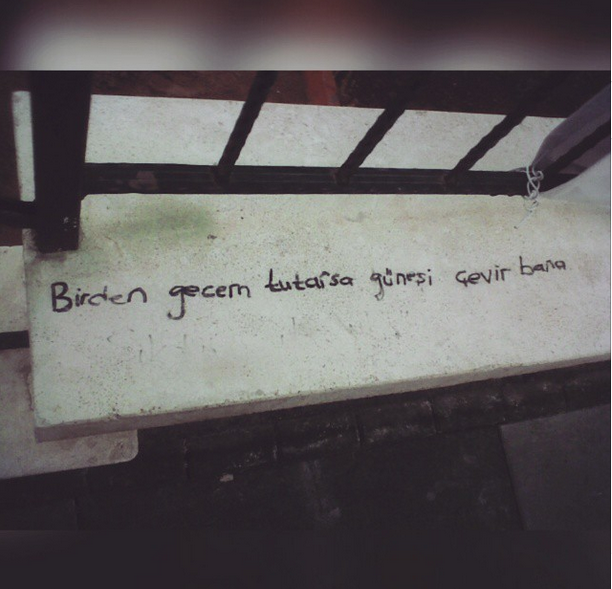 Birden gecem tutarsa güneşi çevir bana